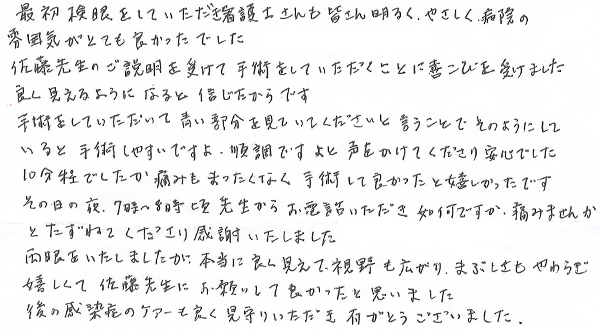 最初検眼をしていただき看護士さんも皆さん明るく、やさしく、病院の
雰囲気がとても良かったでした
佐藤先生のご説明を受けて手術をしていただくことに喜こびを受けました
良く見えるようになると信じたからです
手術をしていただいて青い部分を見ていてくださいと言うことでそのようにして
いると手術しやすいですよ、順調ですよと声をかけてくださり安心でした
10分程でしたが痛みもまったくなく、手術して良かったと嬉しかったです
その日の夜、7時〜8時頃先生からお電話いただき如何ですか、痛みませんか
とたずねてくださり感謝いたしました
両眼をいたしましたが、本当に良く見えて、視野も広がり、まぶしさもやわらぎ
嬉しくて佐藤先生にお願いして良かったと思いました
後の感染症のケアーも良く見守りいただき有がとうございました.